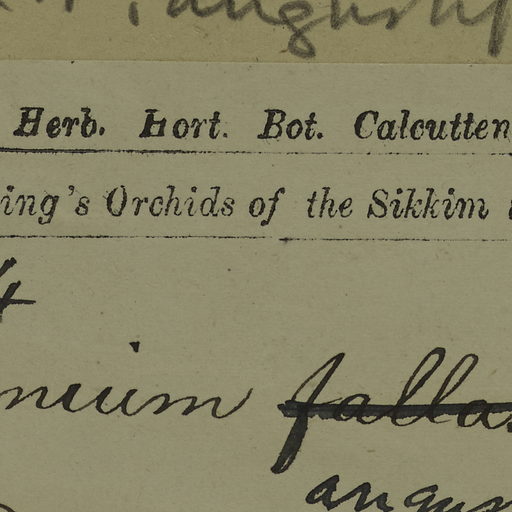 angustif
Herb. Hort. Bot. Calcutten
ing's Orchids of the Sikkim
4
nium falla
angus